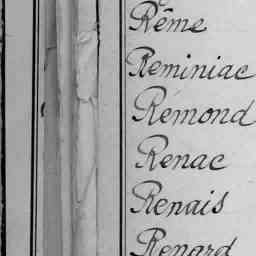 Rême
Reminiac
Rémond
Renac
Renais
Renard